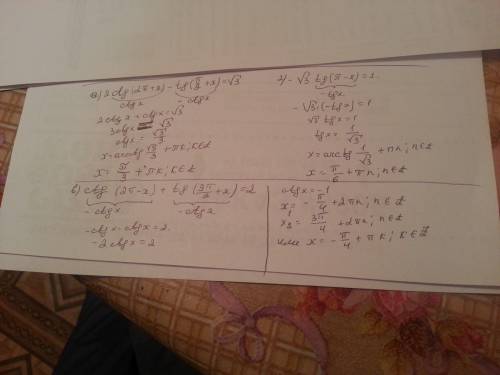 а) 2ctg(2π+x) - tg(π/2+x)=√3
ctgx - ctgx
2ctgx + ctgx = √3
3ctgx = √3
ctgx = √3/3
x = arcctg √3/3 + πk; k∈Z
x = π/3 + πk; k∈Z
г) - √3 tg(π-x)=1.
-tgx
-√3·(-tgx)=1
√3 tgx=1
tgx = 1/√3
x = arctg 1/√3 + πn; n∈Z
x = π/6 + πn; n∈Z
в) ctg (2π-x) + tg(3π/2+x)=2
-ctgx -ctgx
-ctgx-ctgx=2.
-2ctgx=2
ctgx=-1
x₁ = -π/4 + 2πn; n∈Z
x₂ = 3π/4 + 2πn; n∈Z
или x = -π/4 + πk; k∈Z